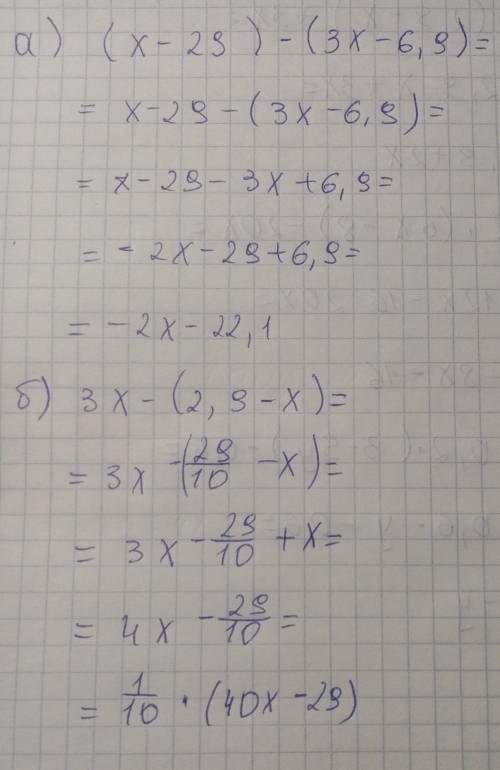 а) (x - 29) - (3x - 6,9) =
= x - 29 - (3x - 6,9) =
= x - 29 - 3x + 6,9 =
= - 2x - 29 + 6,9 =
= - 2x - 22,1
б) 3x - (2,9 - x) =
= 3x - (29/10 - x) =
= 3x - 29/10 + x =
= 4x - 29/10 =
= 1/10 · (40x - 29)